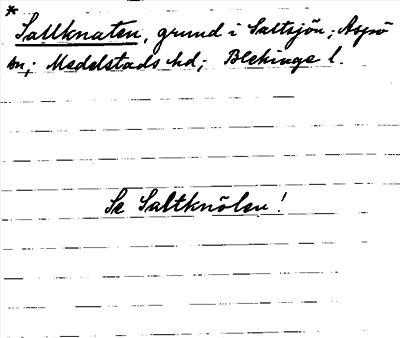 *
Saltknaten, grund i Saltsjön; Aspö
sn; Medelstads hd; Blekinge l.
Se Saltknölen!